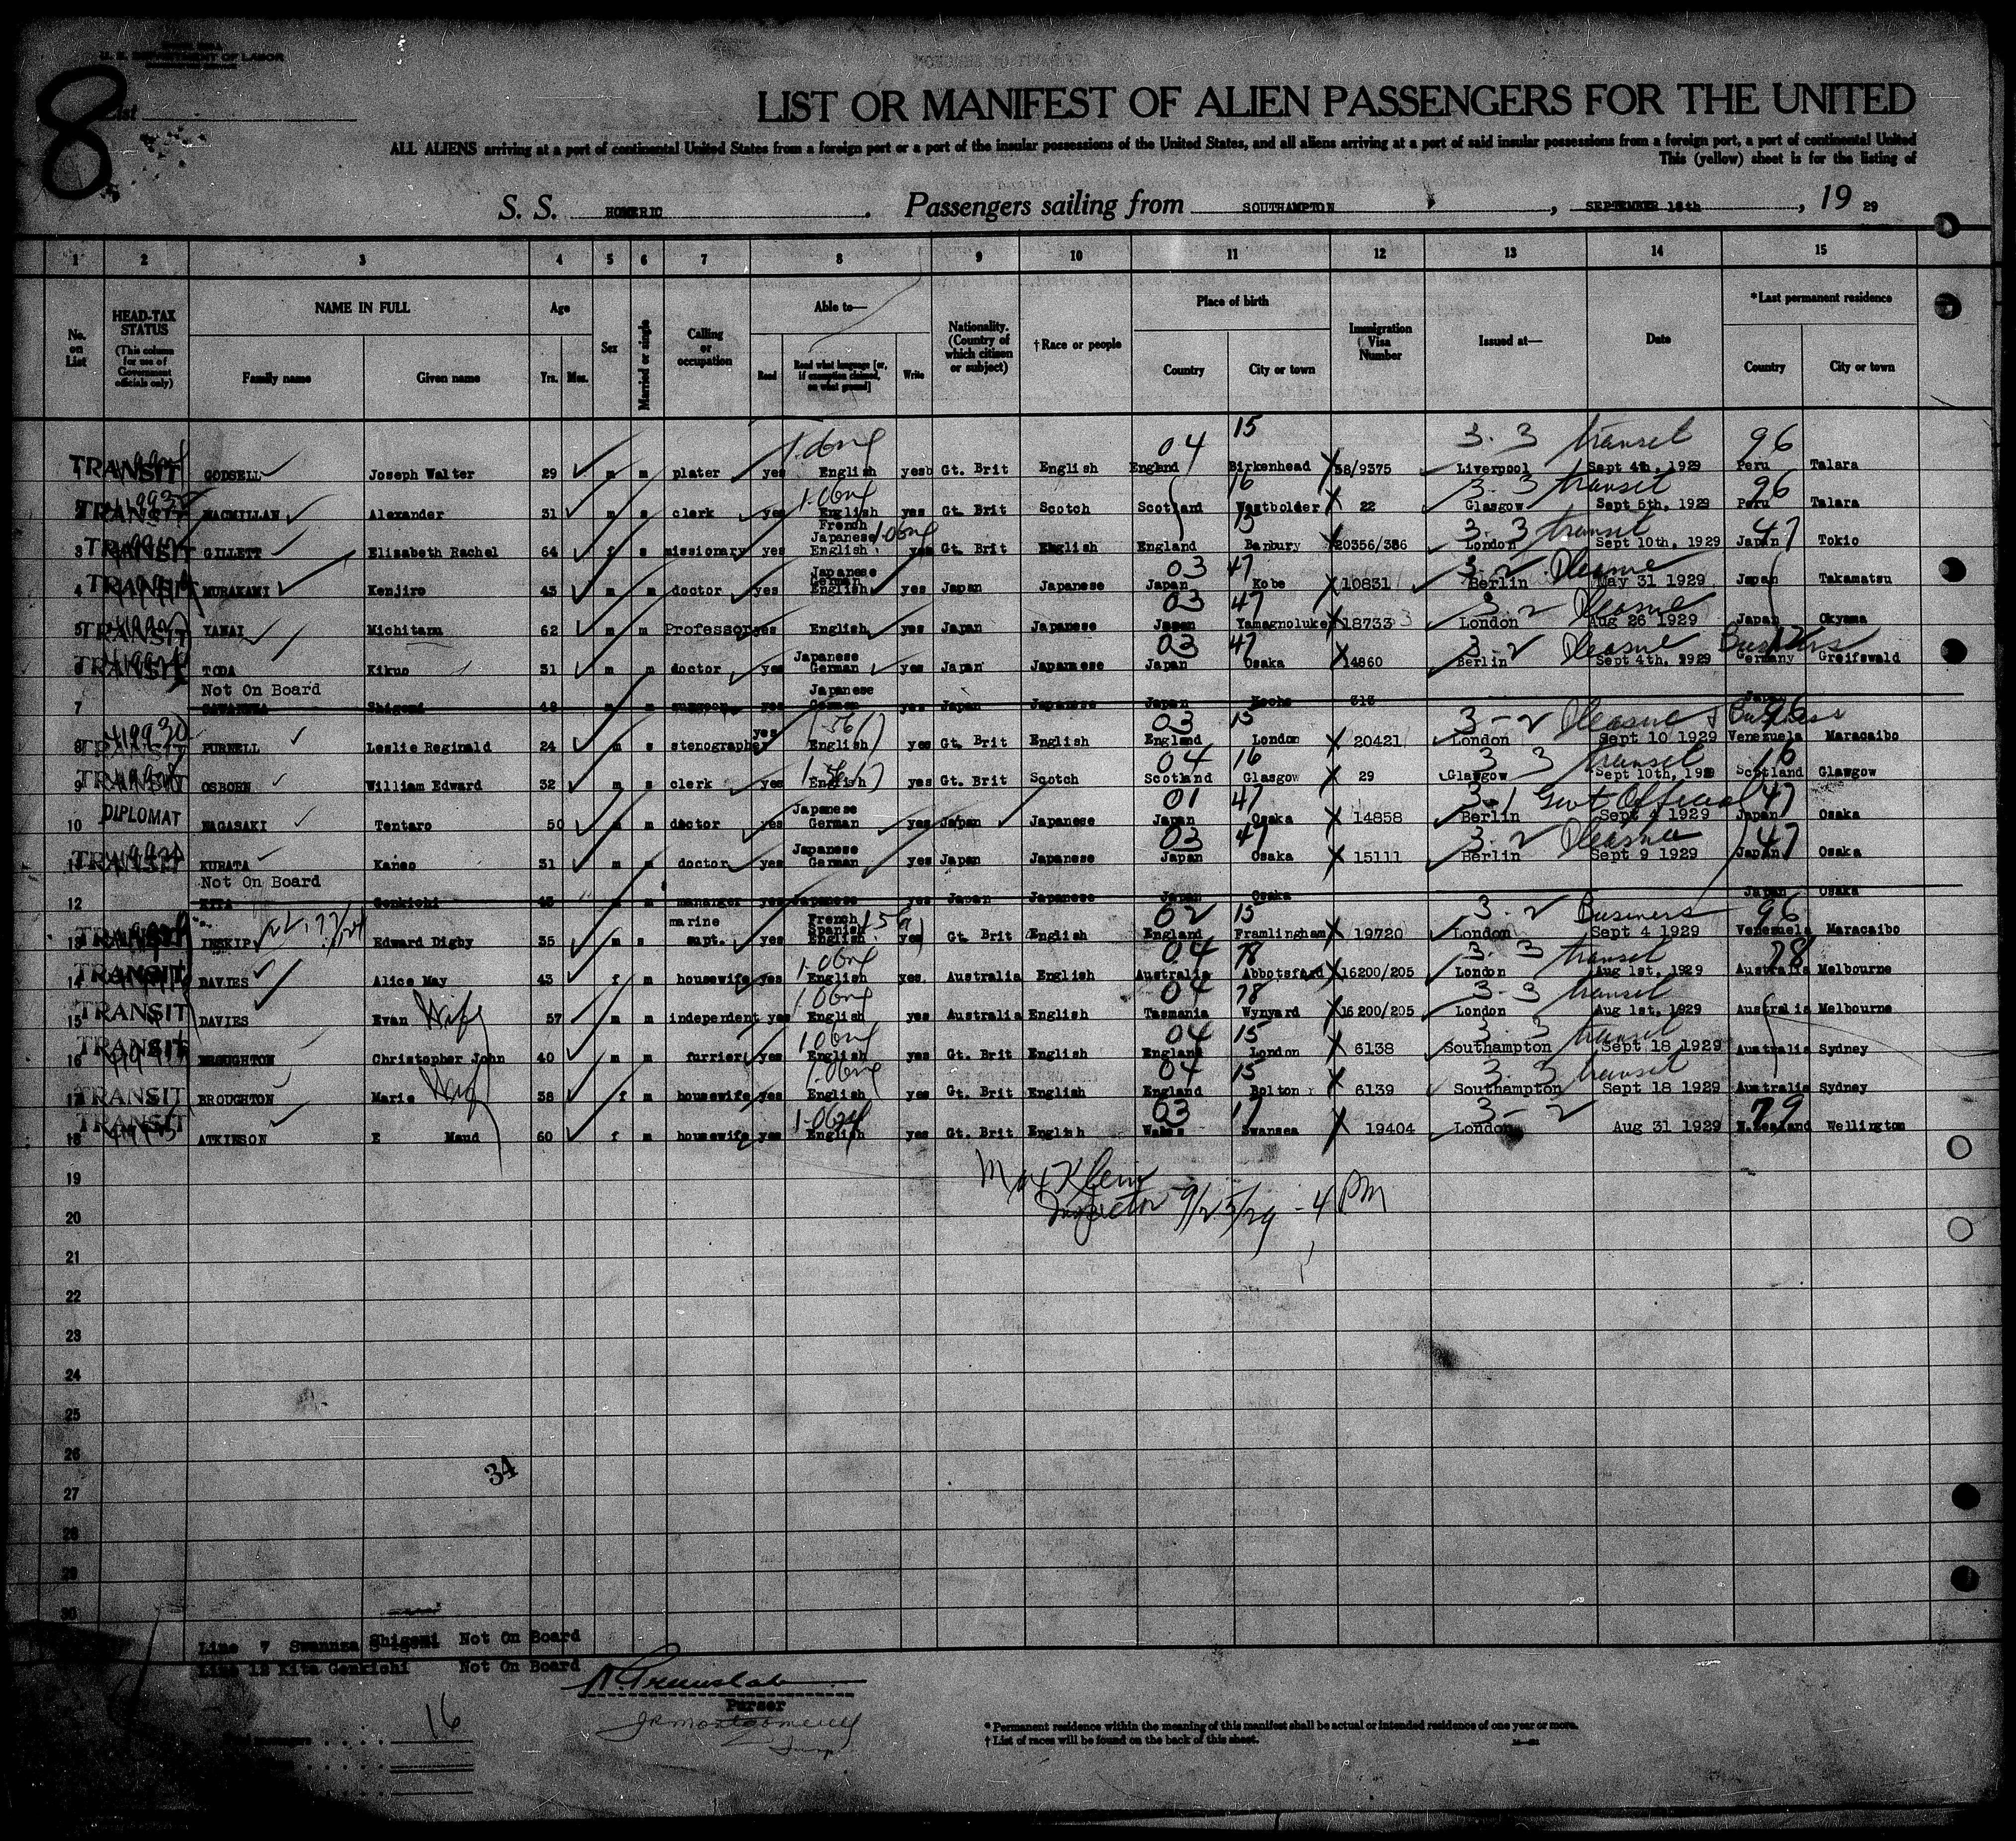 U. S. DEPARTMENT OF LABOR
8
List
LIST OR MANIFEST OF ALIEN PASSENGERS FOR THE UNITED
ALL ALIENS arriving at a port of continental United States from a foreign port or a port of the insular possessions of the United States, and all aliens arriving at a port of said insular possessions from a foreign port, a port of continental United
This (yellow) sheet is for the listing of
S. S. HOMERIC. Passengers sailing from SOUTHAMPTON, SEPTEMBER 18th, 19 29
1 2 3 4 5 6 7 8 9 10 11 12 13 14 15
No. on List
HEAD-TAX STATUS (This column for use of Government officials only)
NAME IN FULL Family name Given name
Age Yrs. Mos.
Sex
Married or single
Calling or occupation
Able to— Read Read what language [or, if exemption claimed, on what ground] Write
Nationality. (Country of which citizen or subject)
†Race or people
Place of birth Country City or town
Immigration Visa Number
Issued at—
Date
*Last permanent residence Country City or town
04 15 3.3 transit 96
TRANSIT GODSELL Joseph Walter 29 m m plater yes English yes Gt. Brit English England Birkenhead 58/9375 Liverpool Sept 4th, 1929 Peru Talara
16 3.3 transit 96
2 TRANSIT MACMILLAN Alexander 31 m s clerk yes English yes Gt. Brit Scotch Scotland Westbolder 22 Glasgow Sept 5th, 1929 Peru Talara
15 3.3 transit 47
3 TRANSIT GILLETT Elisabeth Rachel 64 f s missionary yes French Japanese English yes Gt. Brit English England Banbury 20356/386 London Sept 10th, 1929 Japan Tokio
03 47 3-2 Pleasure
4 TRANSIT MURAKAMI Kenjiro 43 m m doctor yes Japanese German English yes Japan Japanese Japan Kobe 10831 Berlin May 31 1929 Japan Takamatsu
03 47 3-2 Pleasure
5 TRANSIT YANAI Michitaru 62 m m Professor yes English yes Japan Japanese Japan Yamagnoluke 18733 London Aug 26 1929 Japan Okyama
03 47 3-2 Pleasure Business
6 TRANSIT TODA Kikuo 31 m m doctor yes Japanese German yes Japan Japanese Japan Osaka 14860 Berlin Sept 4th, 1929 Germany Greifswald
Not On Board
7 Shigemi 48 m m surgeon yes Japanese German yes Japan Japanese Japan Kochi 313 Japan
03 15 3-2 Pleasure & Business 96
8 TRANSIT PURNELL Leslie Reginald 24 m s stenographer yes English yes Gt. Brit English England London 20421 London Sept 10 1929 Venezuela Maracaibo
04 16 3 3 transit 16
9 TRANSIT OSBORN William Edward 32 m s clerk yes English yes Gt. Brit Scotch Scotland Glasgow 29 Glasgow Sept 10th, 1929 Scotland Glasgow
01 47 3-1 Govt Official 47
10 DIPLOMAT NAGASAKI Tentaro 50 m m doctor yes Japanese German yes Japan Japanese Japan Osaka 14858 Berlin Sept 4 1929 Japan Osaka
03 47 3-2 Pleasure 47
11 TRANSIT KURATA Kaneo 31 m m doctor yes Japanese German yes Japan Japanese Japan Osaka 15111 Berlin Sept 9 1929 Japan Osaka
Not On Board
12 KITA Genkichi 45 m m mananger yes Japanese yes Japan Japanese Japan Osaka Japan Osaka
02 15 3-2 Business 96
13 TRANSIT INSKIP Edward Digby 35 m s marine supt. yes French Spanish English yes Gt. Brit English England Framlingham 19720 London Sept 4 1929 Venezuela Maracaibo
04 78 3-3 transit 78
14 TRANSIT DAVIES Alice May 43 f m housewife yes English yes Australia English Australia Abbotsford 16200/205 London Aug 1st, 1929 Australia Melbourne
04 78 3-3 transit
15 TRANSIT DAVIES Evan Wife 57 m m independent yes English yes Australia English Tasmania Wynyard 16200/205 London Aug 1st, 1929 Australia Melbourne
04 15 3.3 transit
16 TRANSIT BROUGHTON Christopher John 40 m m furrier yes English yes Gt. Brit English England London 6138 Southampton Sept 18 1929 Australia Sydney
04 15 3.3 transit
17 TRANSIT BROUGHTON Marie Wife 38 f m housewife yes English yes Gt. Brit English England Bolton 6139 Southampton Sept 18 1929 Australia Sydney
03 17 3-2 79
18 TRANSIT ATKINSON E Maud 60 f m housewife yes English yes Gt. Brit English Wales Swansea 19404 London Aug 31 1929 N.Zealand Wellington
19
Max Klein
Inspector 9/25/29 - 4 PM
20
21
22
23
24
25
26
34
27
28
29
30
Line 7 Swannza Shigemi Not On Board
Line 12 Kita Genkichi Not On Board
Purser
16
passengers
* Permanent residence within the meaning of this manifest shall be actual or intended residence of one year or more.
† List of races will be found on the back of this sheet.